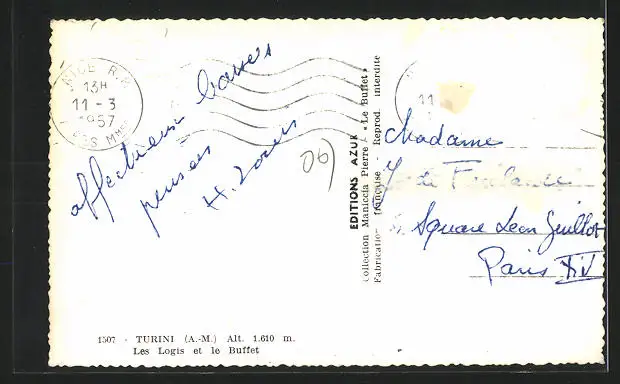 NICE R.P.
13H
11-3
1957
affectueux baisers
pensées
H.
06)
EDITIONS AZUR
Collection Maniccia Pierre - « Le Buffet »
Fabrication française - Reprod. interdite
11
Madame
Square Léon Guillot
Paris XV
1507 - TURINI (A.-M.) Alt. 1.610 m.
Les Logis et le Buffet